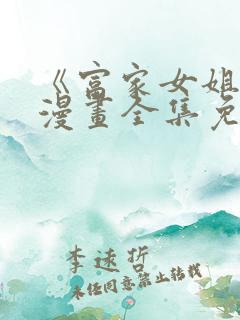 《富家女姐
漫畫全集免
李逑折
未经同意禁止转载